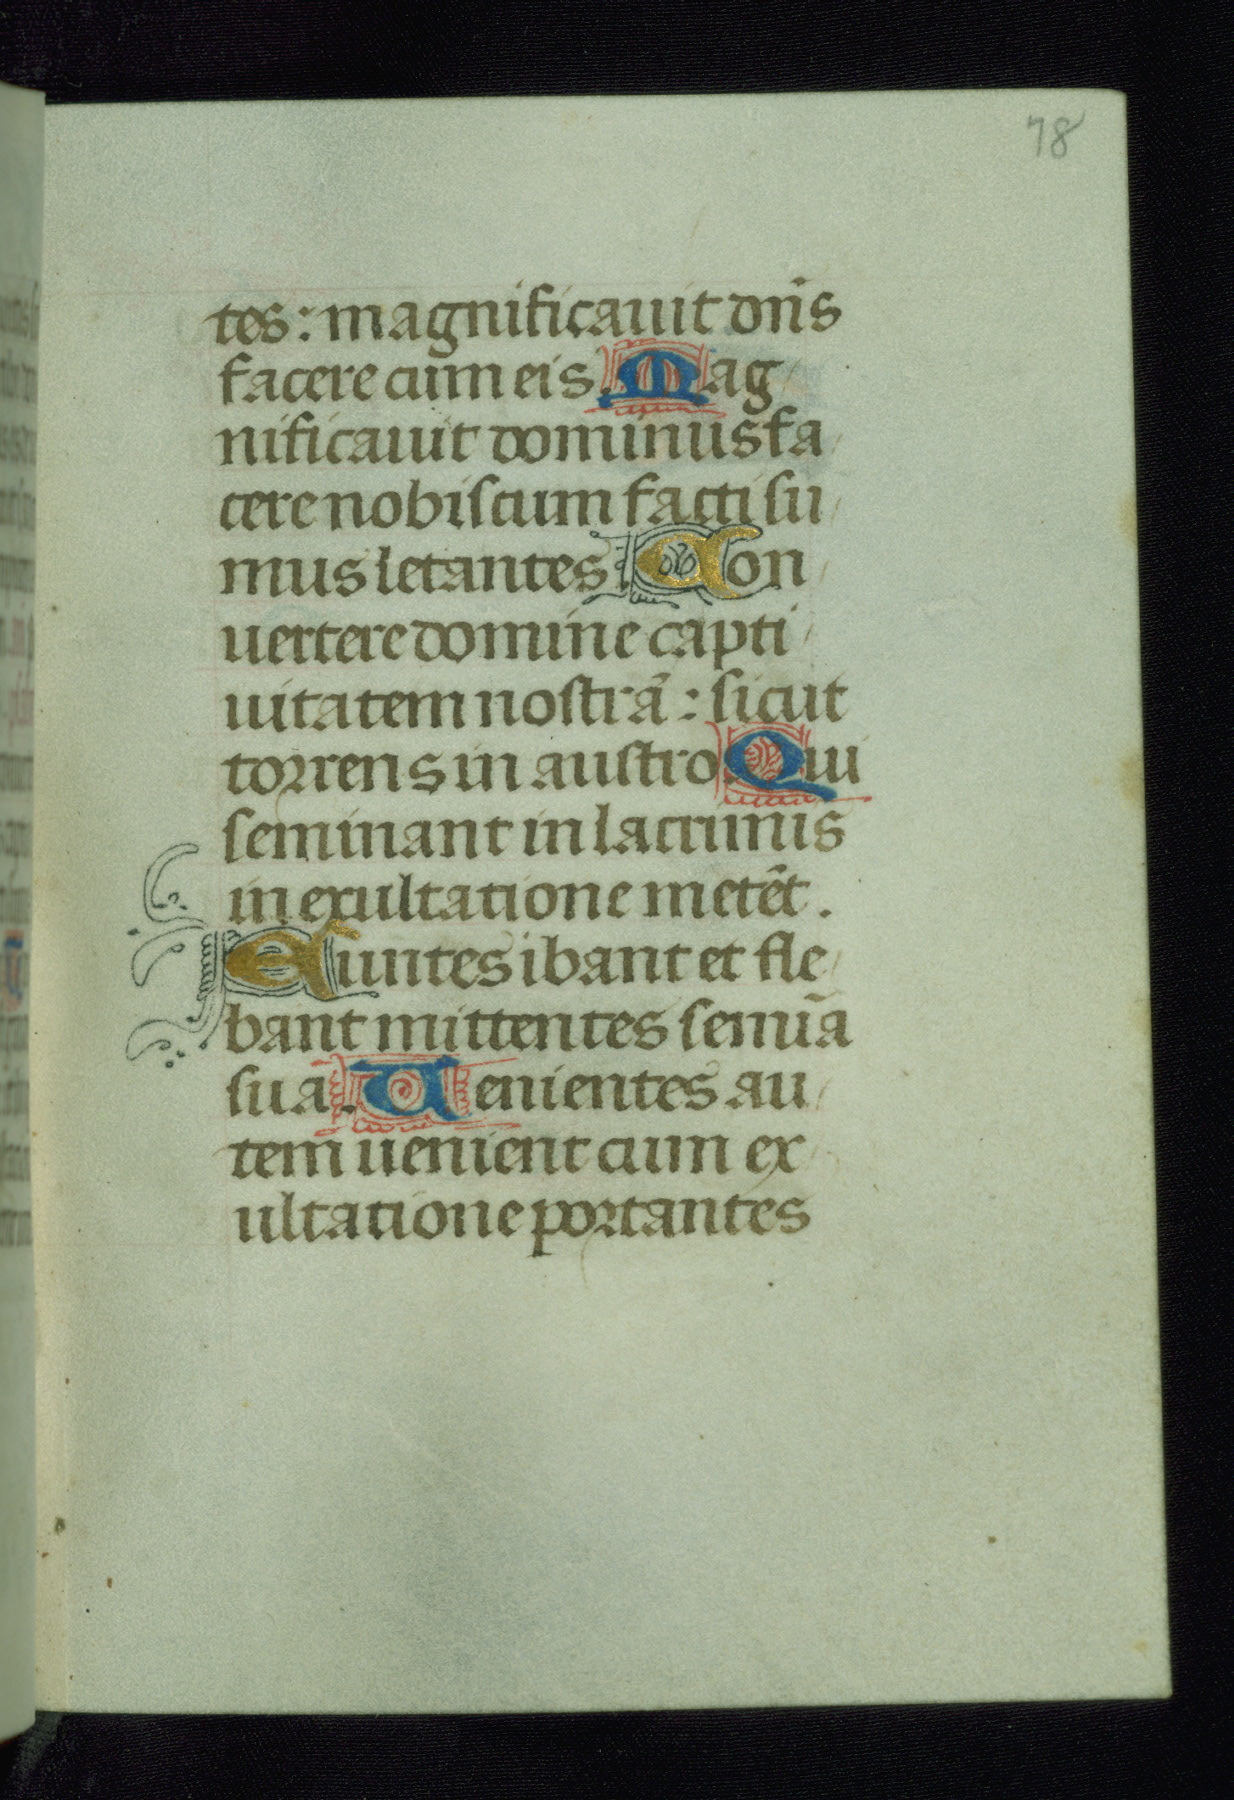 78
tes: magnificauit dn̄s
facere cum eis. Mag
nificauit dominus fa
cere nobiscum facti su
mus letantes. Con
uertere domine capti
uitatem nostrā: sicut
torrens in austro. Qui
seminant in lacrimis
in exultatione metēt.
Euntes ibant et fle
bant mittentes semīa
sua. Uenientes au
tem uenient cum ex
ultatione portantes